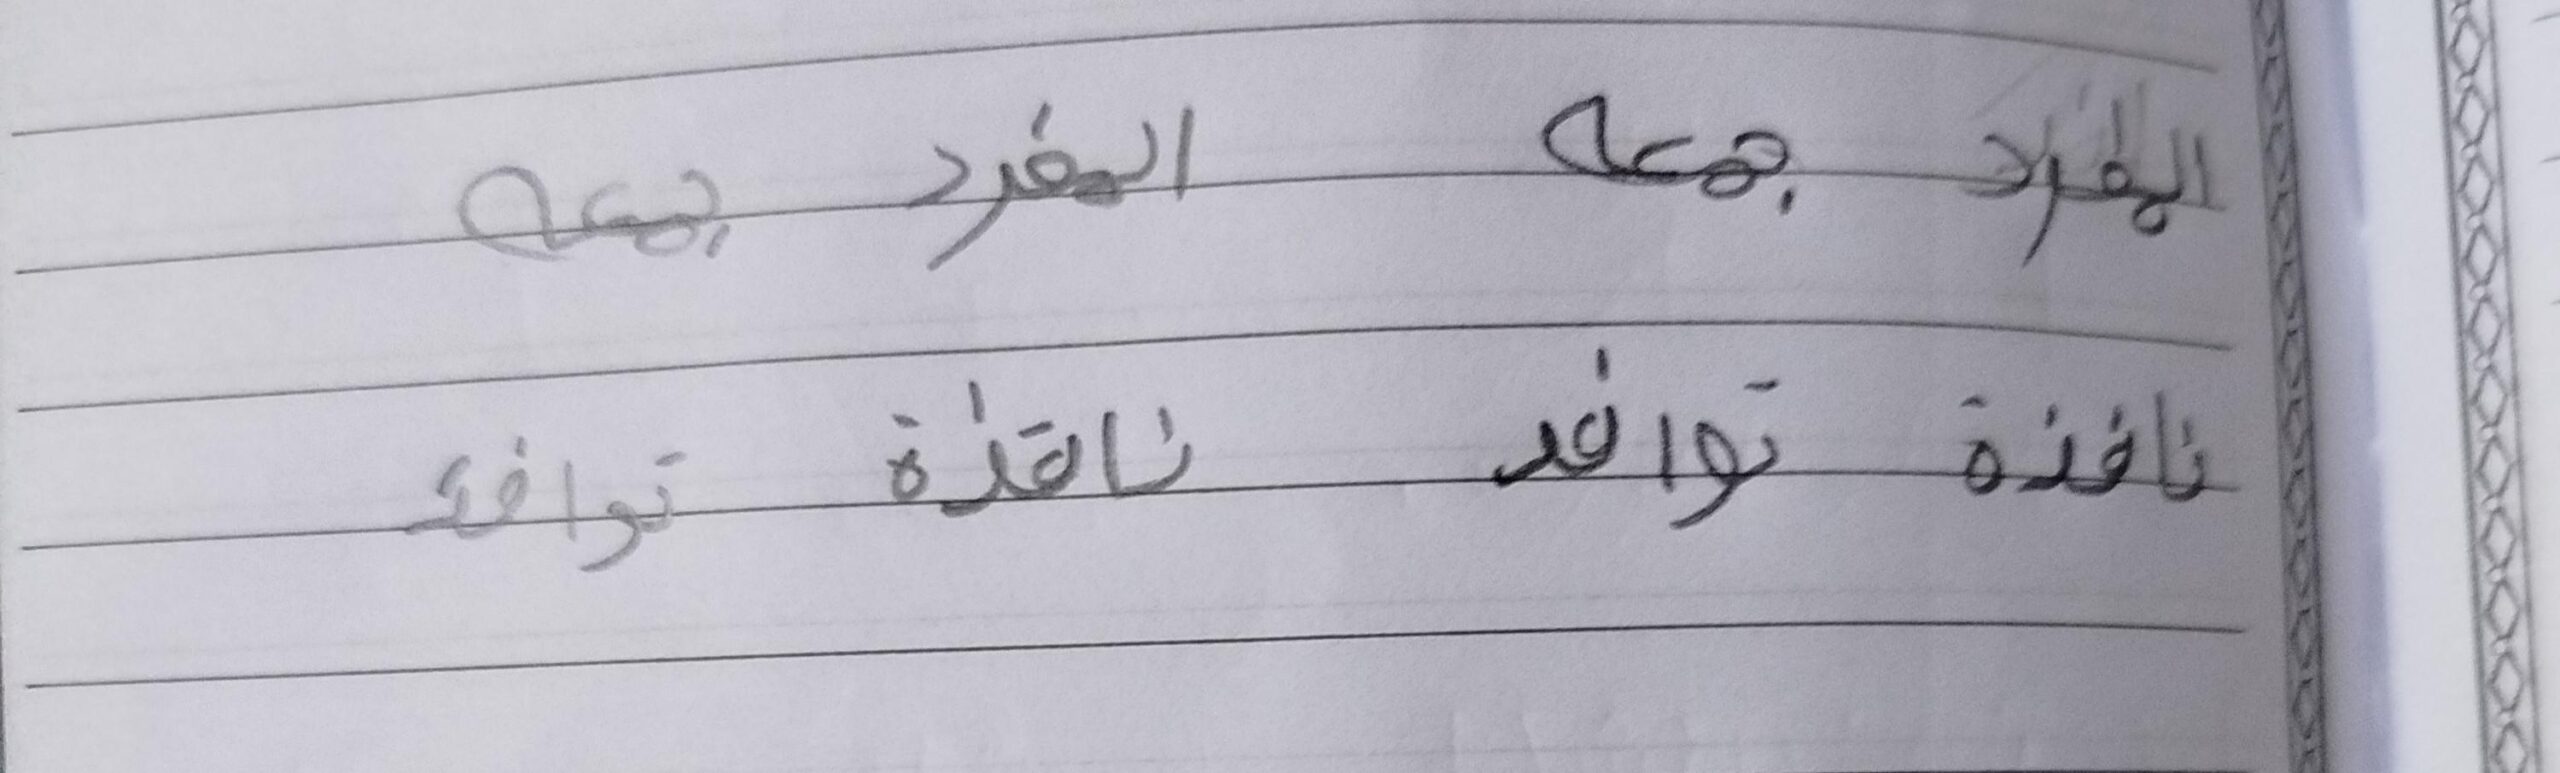 المفرد جمعه المفرد جمعه
نافذة توافد ناقذة توافذ